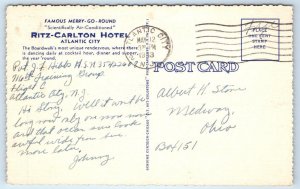 FAMOUS MERRY-GO-ROUND
"Scientifically Air-Conditioned"
RITZ-CARLTON HOTEL
ATLANTIC CITY
The Boardwalk's most unique rendezvous, where there
is dancing daily, cocktail hour, dinner and supper,
the year 'round.
ATLANTIC CITY
PLACE
ONE CENT
STAMP
HERE
POST CARD
Training Group
Flight
Atlantic City N.J.
Hi Stony, Well it won't be
long now only one more
and that ocean sure looks
awful wide from here
more later.
Johnny
Albert H. Stone
Medway,
Ohio
Box 151